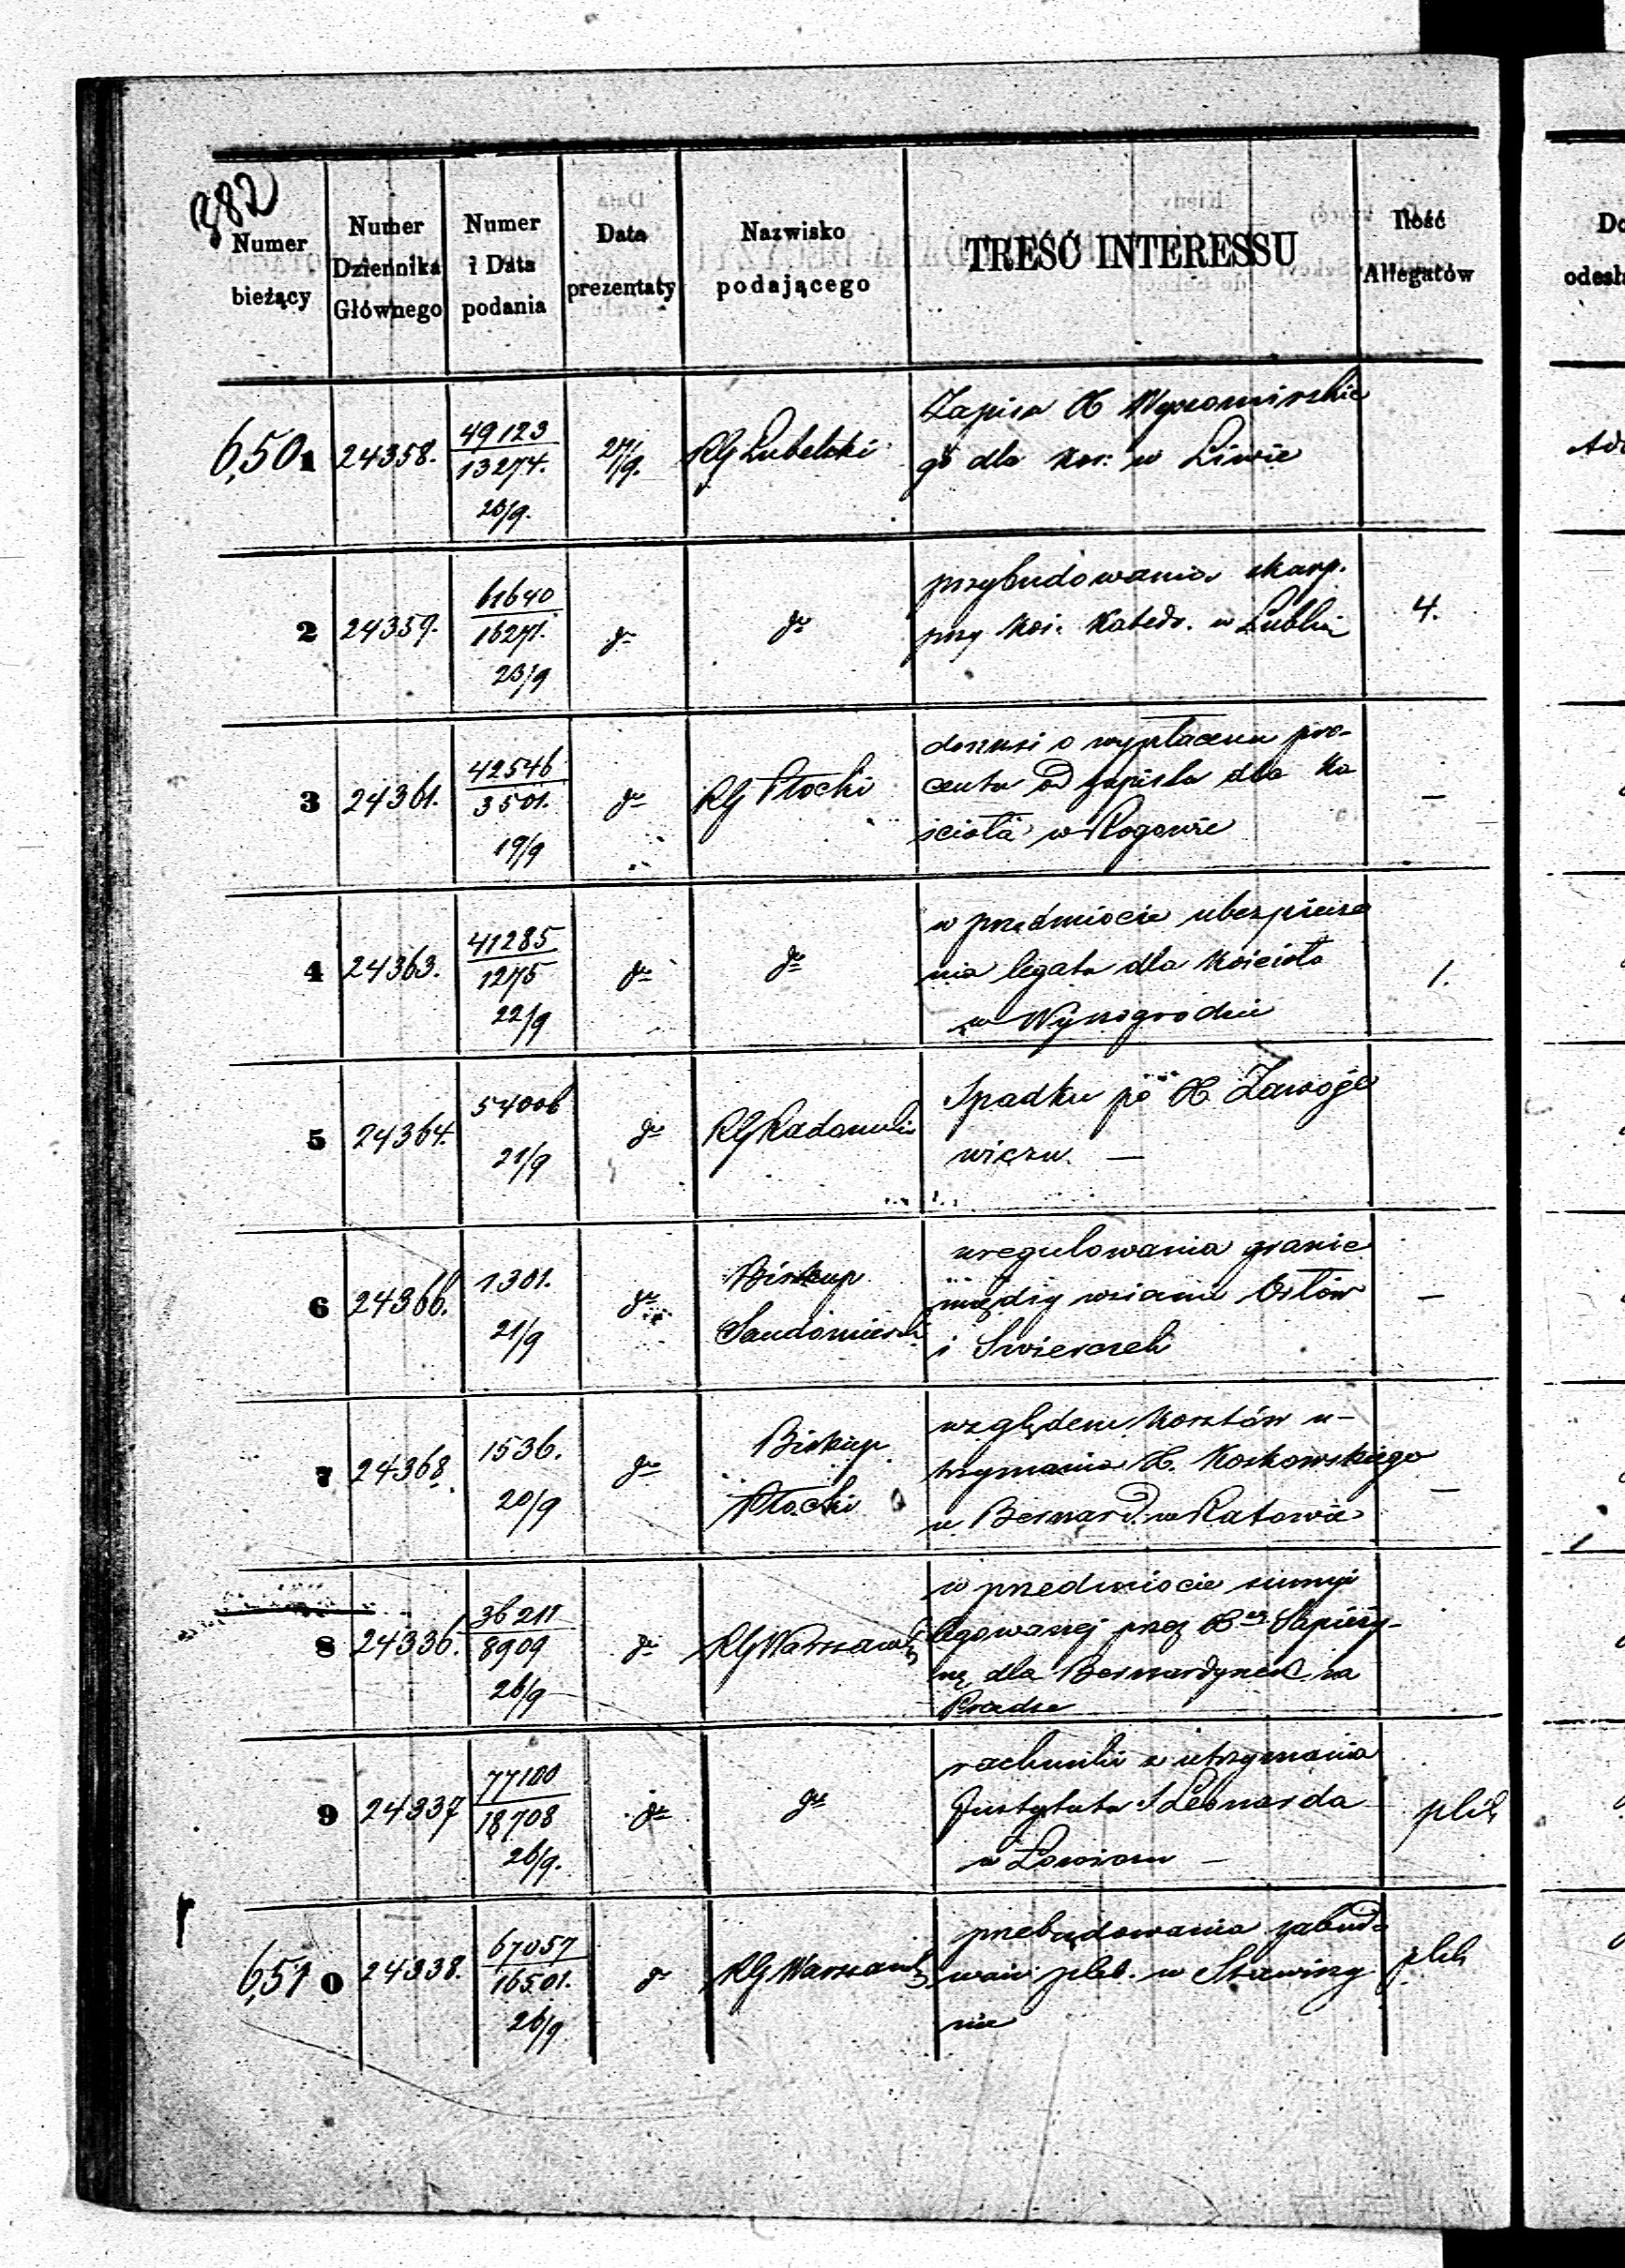 382
Numer bieżący
Numer Dziennika Głównego
Numer i Data podania
Data prezentaty
Nazwisko podającego
TREŚĆ INTERESSU
Ilość Allegatów
6,501 24358. 49123 / 13274. 23/9. 27/9. RG Lubelski
Zapisu X Wyszomirskie
go dla Koś: w Liwie
2 24359. 61640 / 16271. 23/9 do do
przybudowania skarp.
przy Koś. Katedr. w Lublinie
4.
3 24361. 42546 / 3501. 19/9 do RG Płocki
donosi o wypłaceniu pro-
centu od zapisu dla Ko
ścioła w Rogowie
—
4 24363. 41285 / 1275 22/9 do do
w przedmiocie ubezpiecze
nia legatu dla Kościoła
w Wyszogrodzie
1.
5 24364. 54006 21/9 do RG Radomski
Spadku po X. Zawoje
wiczu. —
6 24366. 1301. 21/9 do Biskup
Sandomierski
uregulowania granic
między wsiami Ostów
i Swierczek
—
7 24368. 1536. 20/9 do Biskup
Płocki
względem Kosztów u-
trzymania X. Koskowskiego
u Bernard. w Ratowie
—
8 24336. 36211 / 8909 26/9 do RG Warszawski
w przedmiocie summy
legowanej przez Sapieży-
nę dla Bernardynek na
Pradze
9 24337 77100 / 18708 26/9. do do
rachunki z utrzymania
Instytutu S Leonarda
w Łowiczu —
plik
6,510 24338. 67057 / 16501. 26/9 do RG Warszawski
przebudowania zabudo
wań pleb. w Stawiszy
nie
plik
Do
odesł